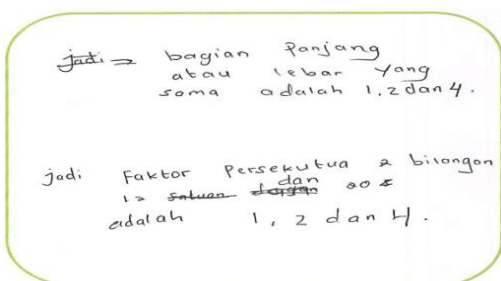 jadi → bagian Panjang
atau lebar yang
sama adalah 1, 2 dan 4.
jadi Faktor Persekutua 2 bilangan
12 satuan dengan dan 20
adalah 1, 2 dan 4.